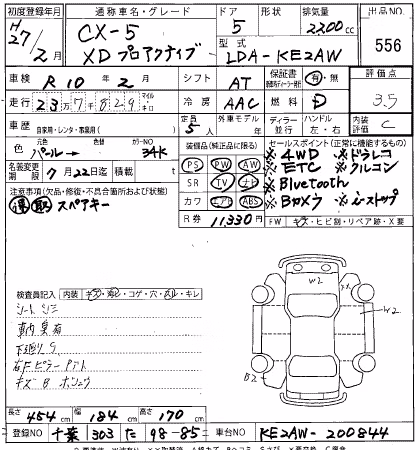 初度登録年月 通称車名・グレード ドア 形状 排気量 出品NO
H27/2月 CX-5 XD プロアクティブ 5 2200 cc 556
型式 LDA-KE2AW
車検 R10年2月 シフト AT 保証書 有・無 評価点
走行 237829 マイル km 冷房 AAC 燃料 D 3.5
車歴 自家用・レンタ・事業用( ) 定員 5人 外車モデル年 ディーラー・並行 ハンドル 左・右 内装 C
色 元色 パール→ 替色 カラーNO 34K
装備品(純正品に限る) セールスポイント(正常に機能するもの)
PS PW AW ※4WD ※ドラレコ
名義変更 7月22日迄 積載 t SR TV ナビ ※ETC ※クルコン
注意事項(欠品・修復・不具合箇所および状態) ※Bluetooth
スペアキー カワ エアB ABS ※Bカメラ ※i-ストップ
R券 11,330円 FW キズ・ヒビ割・リペア跡・X要
検査員記入 内装 キズ・汚レ・コゲ・穴・スレ・キレ
シートシミ W2
車内臭有 W2
下廻りS
右Fピラー
キズ B B2
長さ 454 cm 幅 184 cm 高さ 170 cm
登録NO 千葉 303 た 98-85 車台NO KE2AW-200844